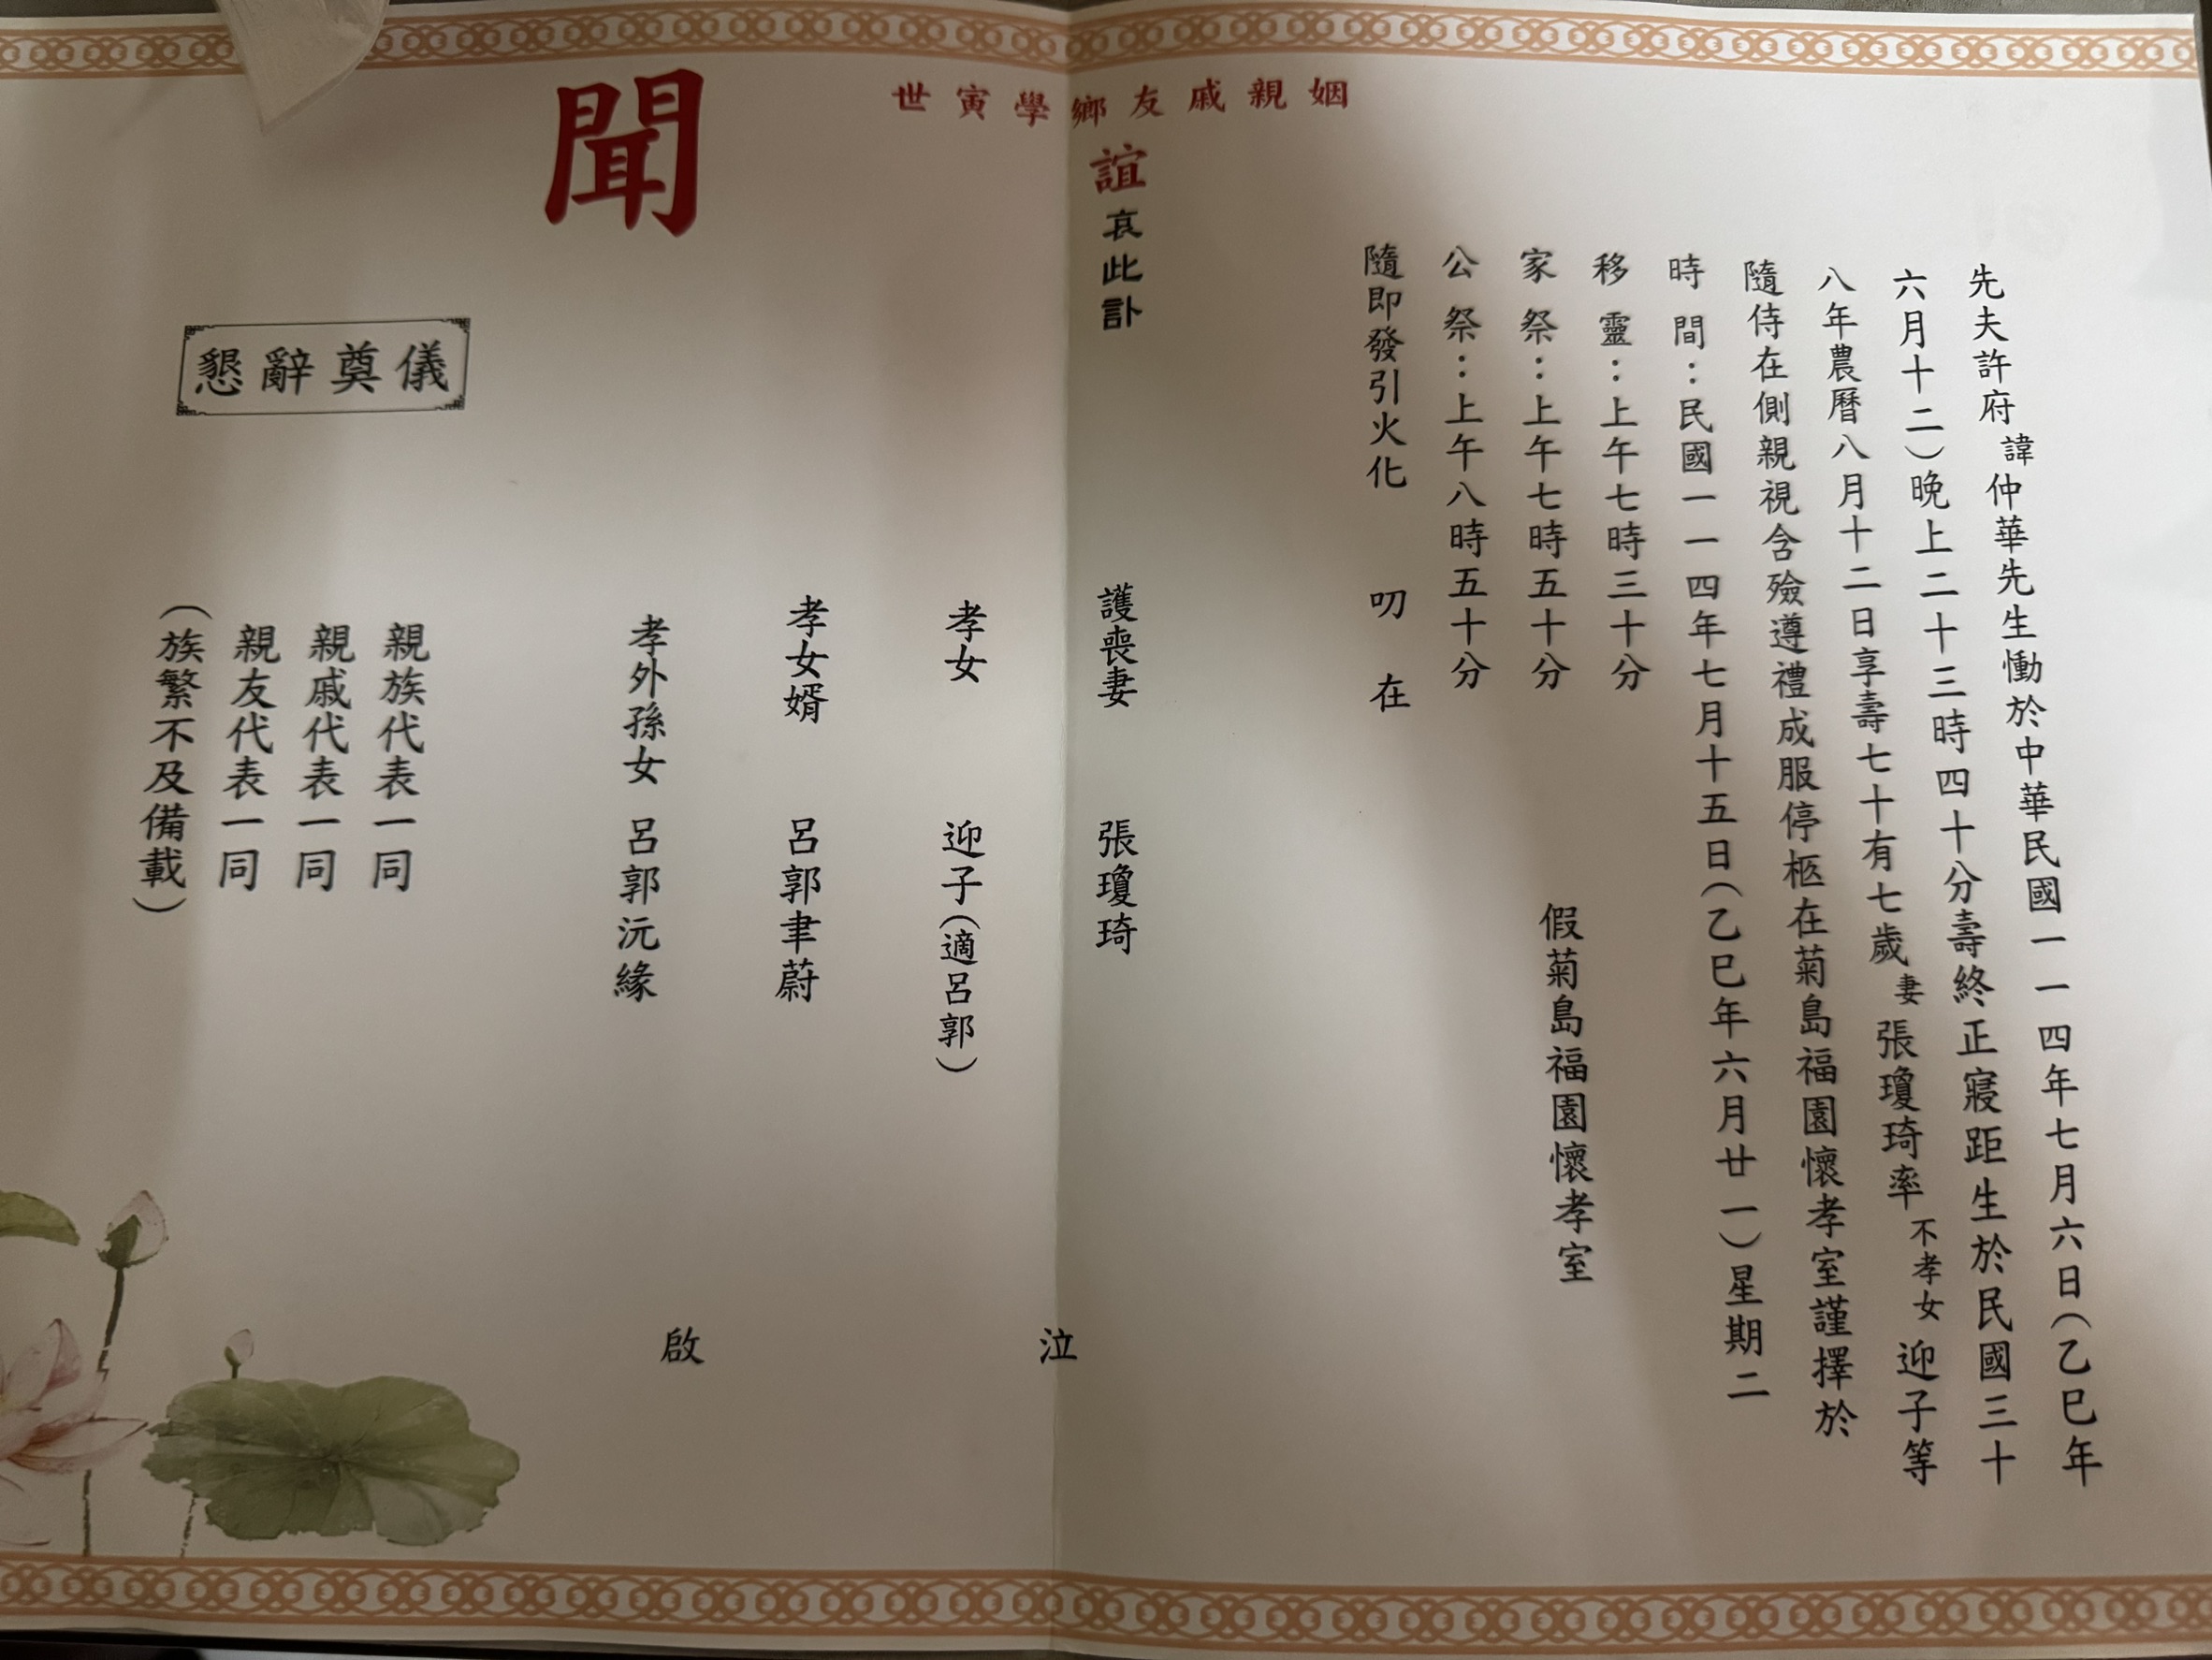 先夫許府諱仲華先生慟於中華民國一一四年七月六日(乙巳年
六月十二)晚上二十三時四十分壽終正寢距生於民國三十
八年農曆八月十二日享壽七十有七歲妻張瓊琦率不孝女迎子等
隨侍在側親視含殮遵禮成服停柩在菊島福園懷孝室謹擇於
時間:民國一一四年七月十五日(乙巳年六月廿一)星期二
移靈:上午七時三十分
家祭:上午七時五十分
假菊島福園懷孝室
公祭:上午八時五十分
隨即發引火化
叨在
姻親戚友鄉學寅世
誼哀此訃
聞
護喪妻 張瓊琦
孝女 迎子(適呂郭)
孝女婿 呂郭聿蔚
孝外孫女 呂郭沅緣
泣
啟
親族代表一同
親戚代表一同
親友代表一同
(族繁不及備載)
懇辭奠儀